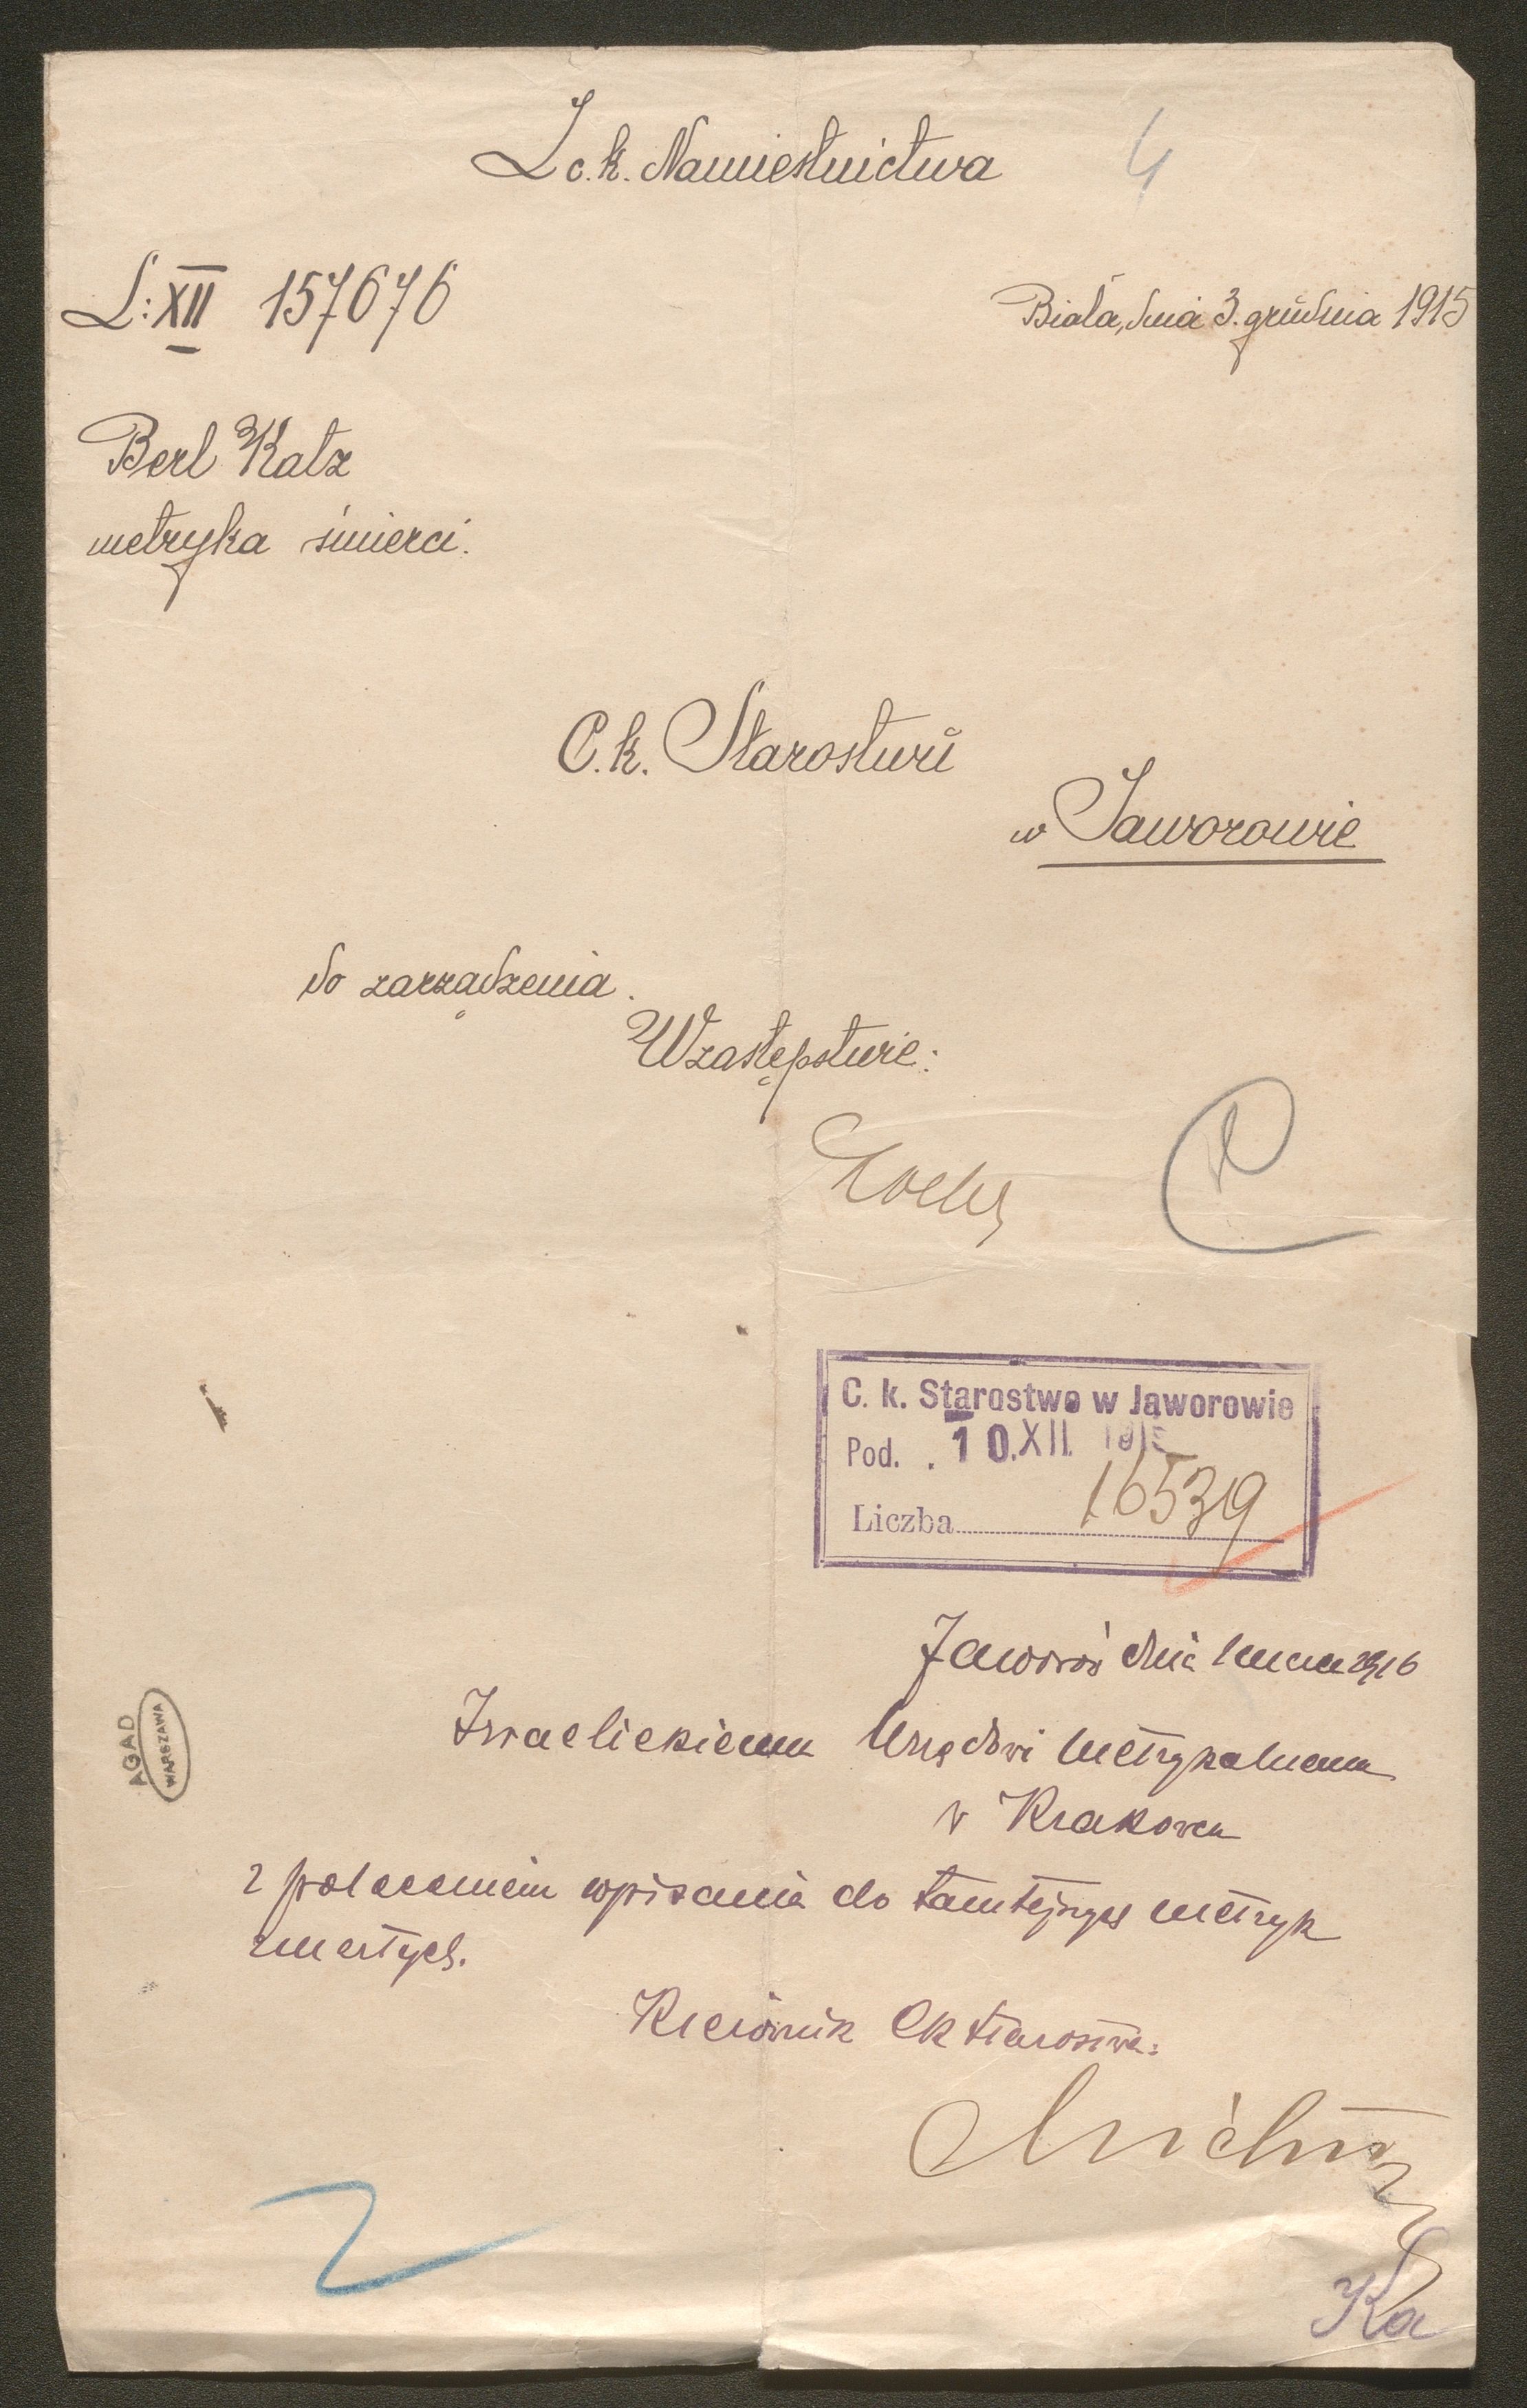 Z c.k. Namiestnictwa
4
L: XII 157676
Biała, dnia 3. grudnia 1915
Berl Katz
metryka śmierci.
C.k. Starostwu
w Jaworowie
do zarządzenia.
W zastępstwie:
C. k. Starostwo w Jaworowie
Pod. 10. XII. 1915
Liczba 16539
Jaworów dnia 1916
AGAD
WARSZAWA
Izraelickiemu Urzędowi metrykalnemu
w Krakowcu
z poleceniem wpisania do tamtejszych metryk
zmarłych.
Kierownik Ck Starostwa:
Ka